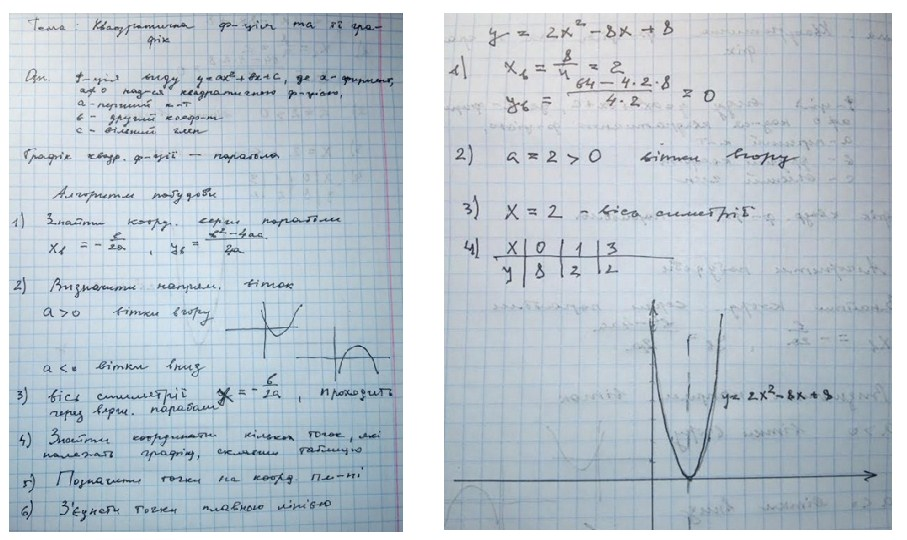 Тема: Квадратична ф-ція та її гра-
фік
Озн. Ф-ція виду y=ax²+bx+c, де a-
a≠0 наз-ся квадратичною ф-цією,
a - перший к-т
b - другий коефіт
c - вільний член
Графік квадр. ф-ції — парабола
Алгоритм побудови
1) Знайти коорд. верш параболи
xв = - b/2a , yв = b²-4ac/2a
2) Визначити напрям. віток
a>0 вітки вгору
a<0 вітки вниз
3) вісь симетрії x = - b/2a , проходить
через верш. параболи
4) Знайти координати кількох точок, які
належать графіку, склавши таблицю
5) Позначити точки на коорд. пл-ні
6) З'єднати точки плавною лінією
y = 2x² - 8x + 8
1) xв = 8/4 = 2
yв = 64-4·2·8/4·2 = 0
2) a = 2 > 0 вітки вгору
3) x = 2 - вісь симетрії
4) x 0 1 3
y 8 2 2
y = 2x² - 8x + 8